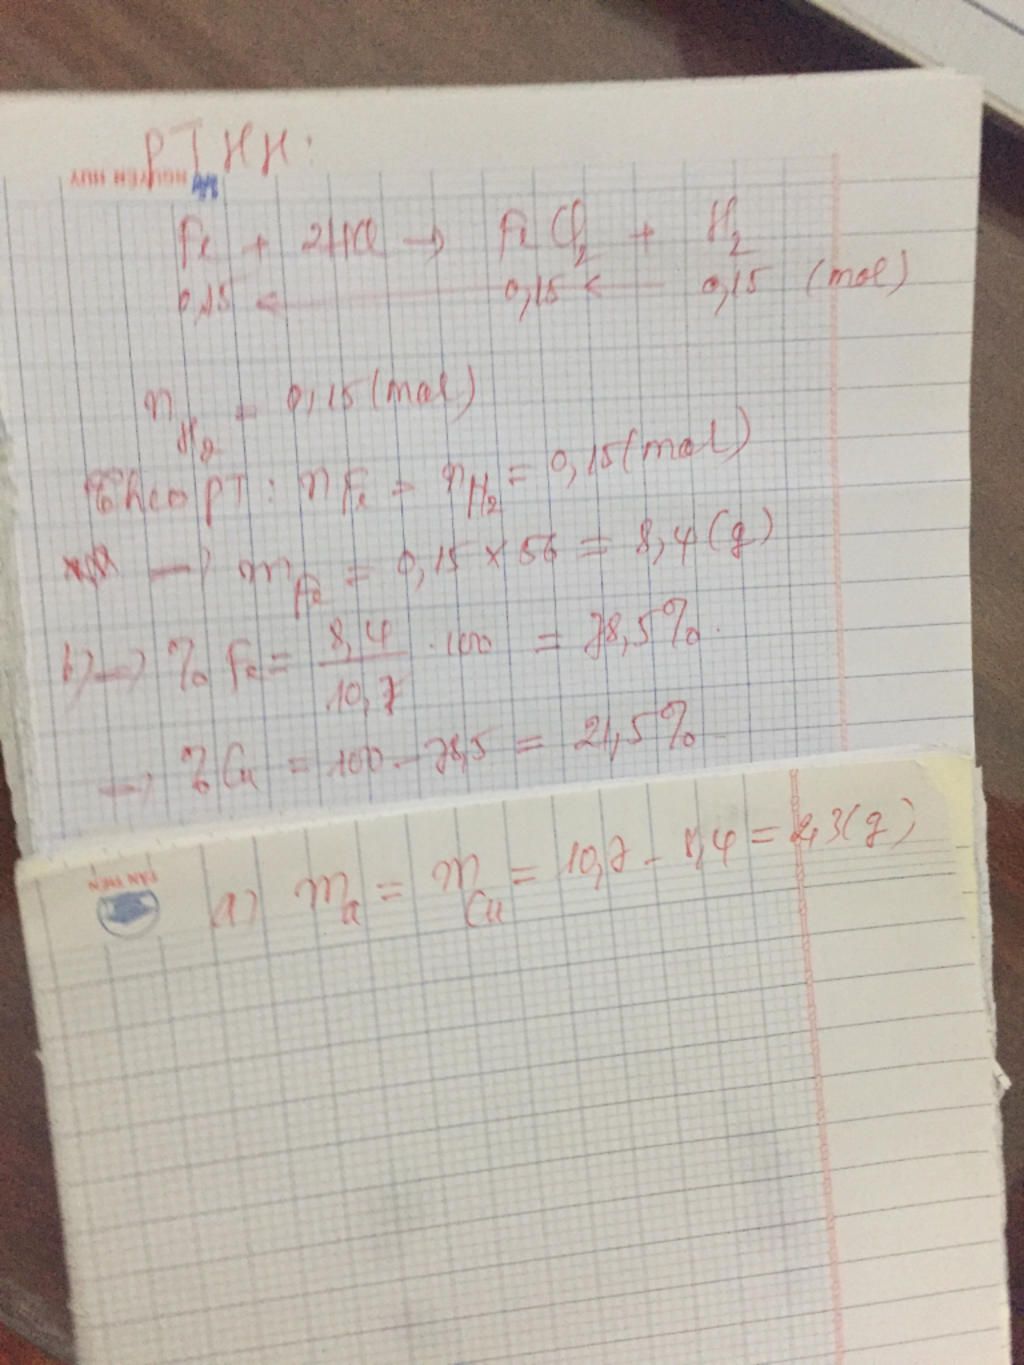 PTHH:
NGUYEN HUY
Fe + 2HCl → FeCl2 + H2
0,15 ← 0,15 ← 0,15 (mol)
nH2 = 0,15 (mol)
Theo PT: nFe = nH2 = 0,15 (mol)
→ mFe = 0,15 x 56 = 8,4 (g)
b) → % Fe = 8,4/10,7 . 100 = 78,5%.
→ % Cu = 100 - 78,5 = 21,5%
a) ma = mCu = 10,7 - 8,4 = 2,3 (g)